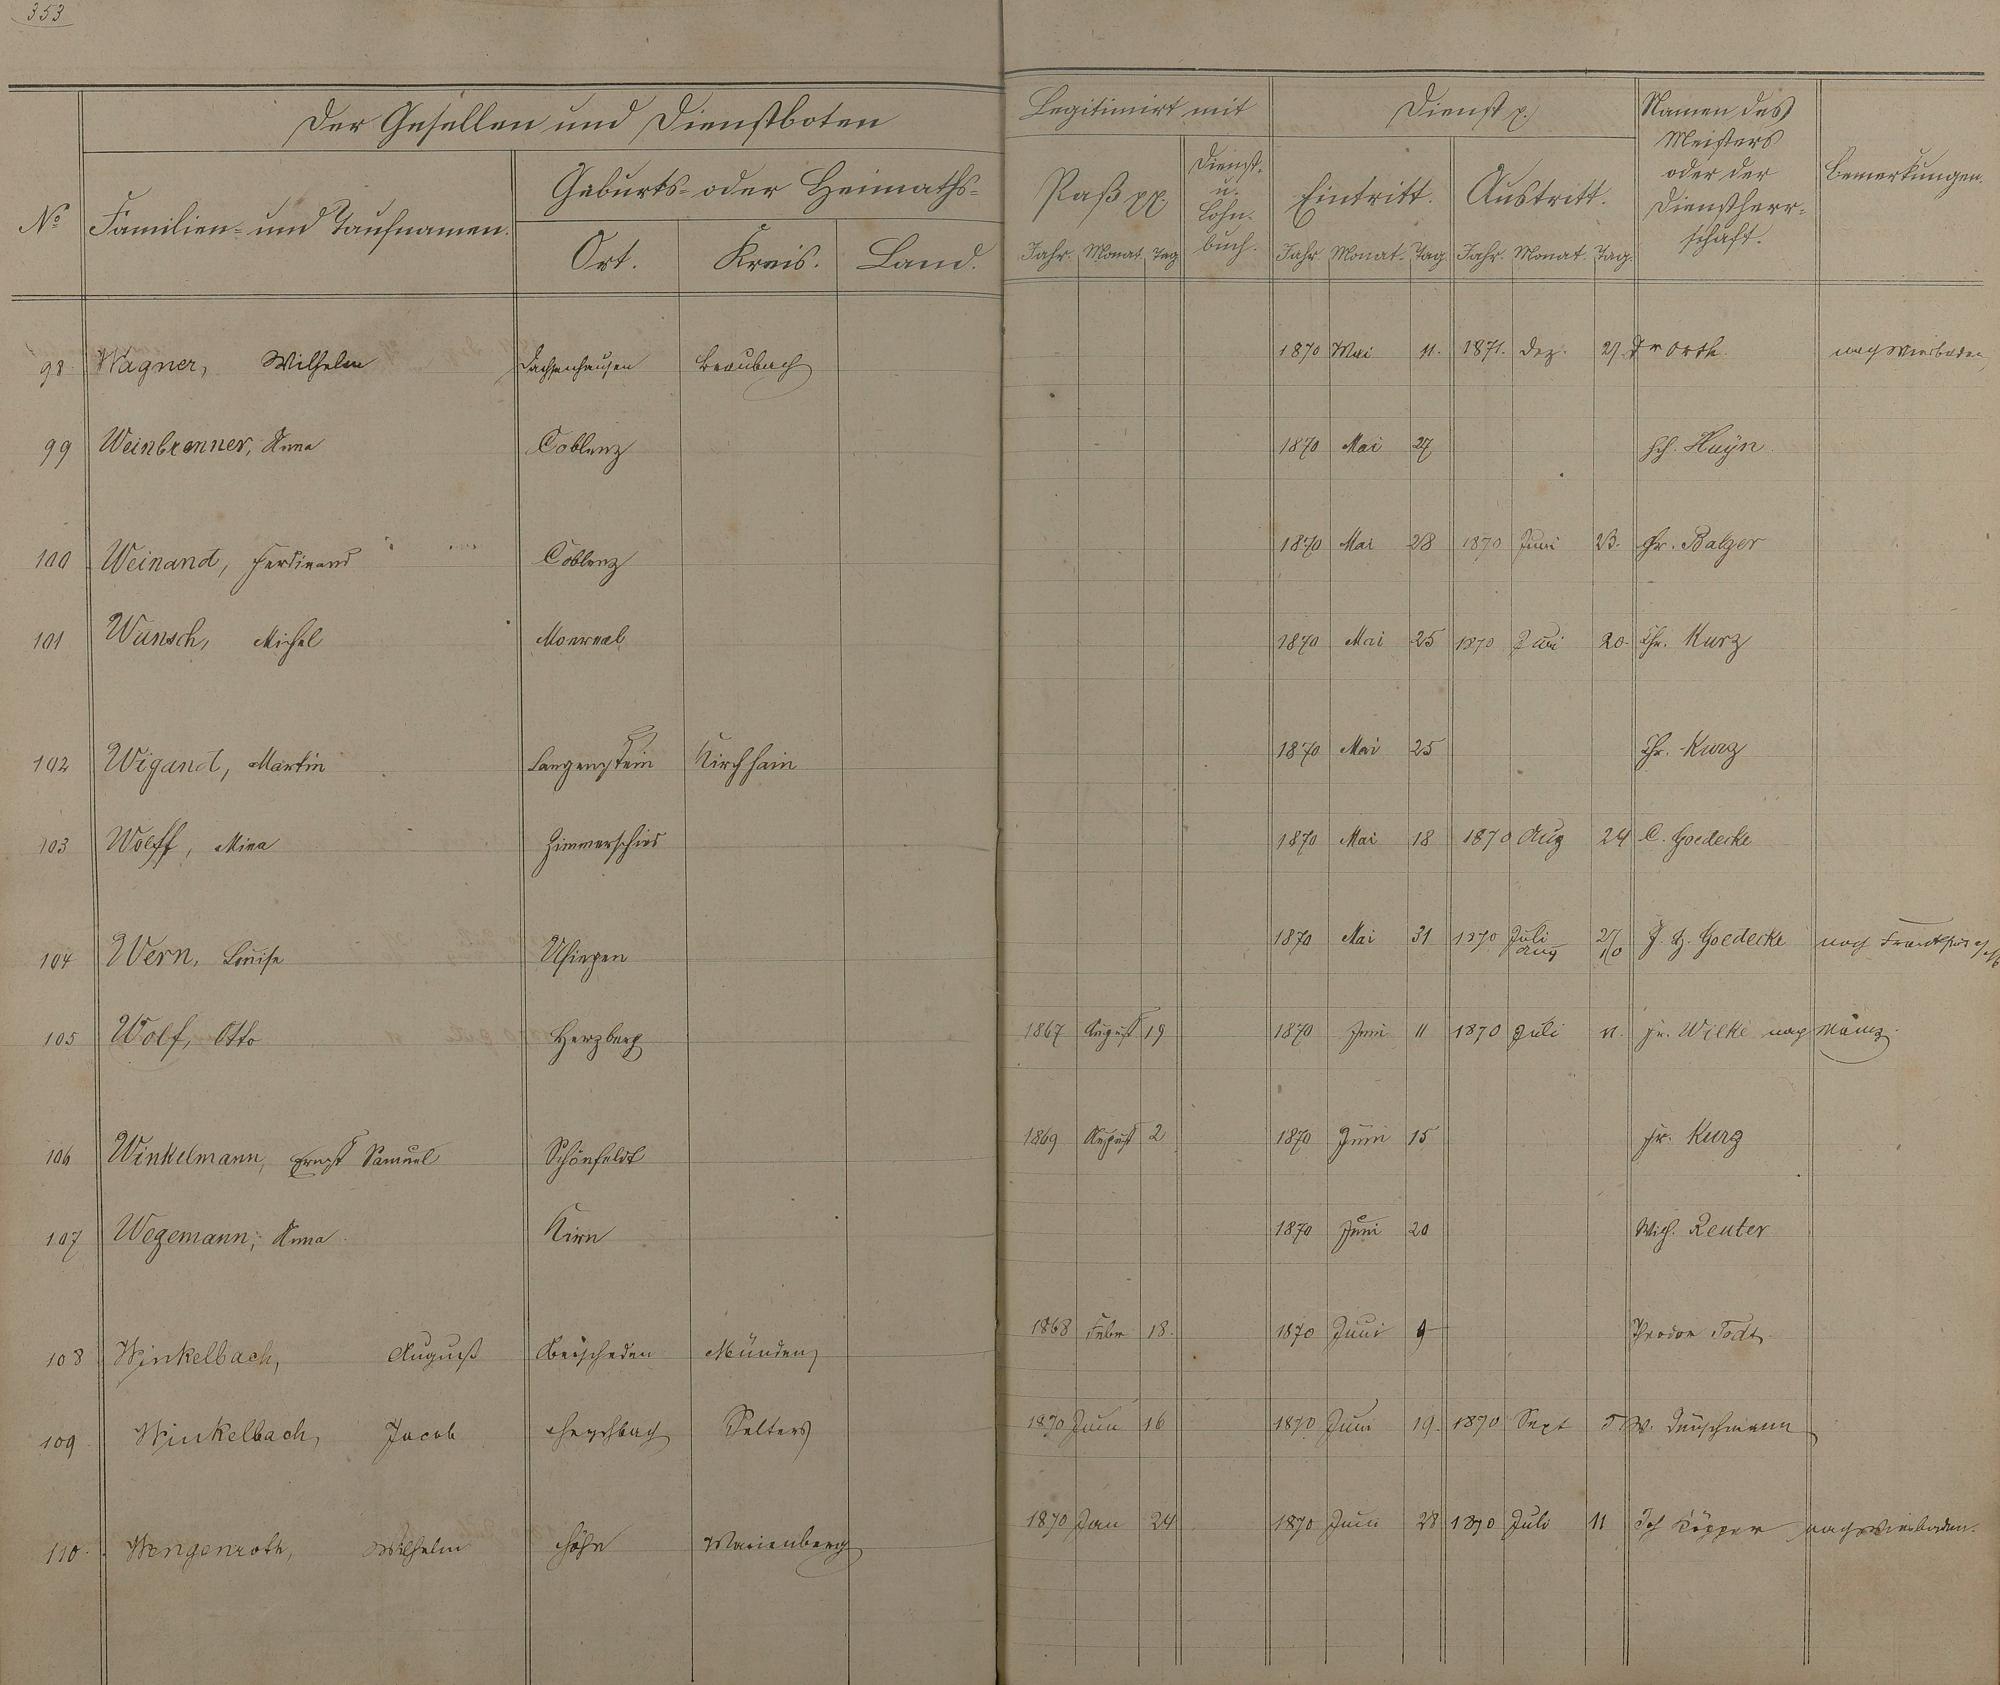 353
Der Gesellen und Dienstboten
Legitimirt mit
Dienst p.
Namen des
Meisters
oder der
Dienstherr-
schaft.
Bemerkungen.
No
Familien- und Taufnamen.
Geburts- oder Heimaths-
Ort. Kreis. Land.
Paß pp.
Dienst-
u.
Lohn-
buch.
Eintritt. Austritt.
Jahr. Monat. Tag Jahr. Monat. Tag Jahr. Monat. Tag.
98 Wagner, Wilhelm Dachsenhausen Braubach 1870 Mai 11. 1871. Dez. 21. Orth. nach Wiesbaden
99 Weinbrenner, Anna Coblenz 1870 Mai 27 Hch. Huyn
100 Weinand, Ferdinand Coblenz 1870 Mai 28 1870 Juni 23. Fr. Balzer
101 Wunsch, Michel Monreal 1870 Mai 25 1870 Juni 20. Chr. Kurz
102 Wigand, Martin Langenstein Kirchhain 1870 Mai 25 Chr. Kurz
103 Wolff, Mina Zimmerschied 1870 Mai 18 1870 Aug 24 C. Goedecke
104 Wern, Louise Usingen 1870 Mai 31 1870 Juli 27 J. H. Goedecke nach Frankfurt a/M
Aug 10
105 Wolf, Otto Herzberg 1867 August 19 1870 Juni 11 1870 Juli 11. Fr. Wilke nach Mainz.
106 Winkelmann, Ernst Samuel Schönfeldt 1869 August 2 1870 Juni 15 Fr. Kurz
107 Wegemann, Anna Kirn 1870 Juni 20 Wilh. Reuter
108 Winkelbach, August Münden 1868 Febr 18. 1870 Juni 9 Todt
109 Winkelbach, Jacob Selters 1870 Juni 16 1870 Juni 19. 1870 Sept 5 W. Deuschmann
110. Wengenroth, Wilhelm Höhn Marienberg 1870 Jan 24 1870 Juni 28 1870 Juli 11 Joh Köpper nach Wiesbaden.